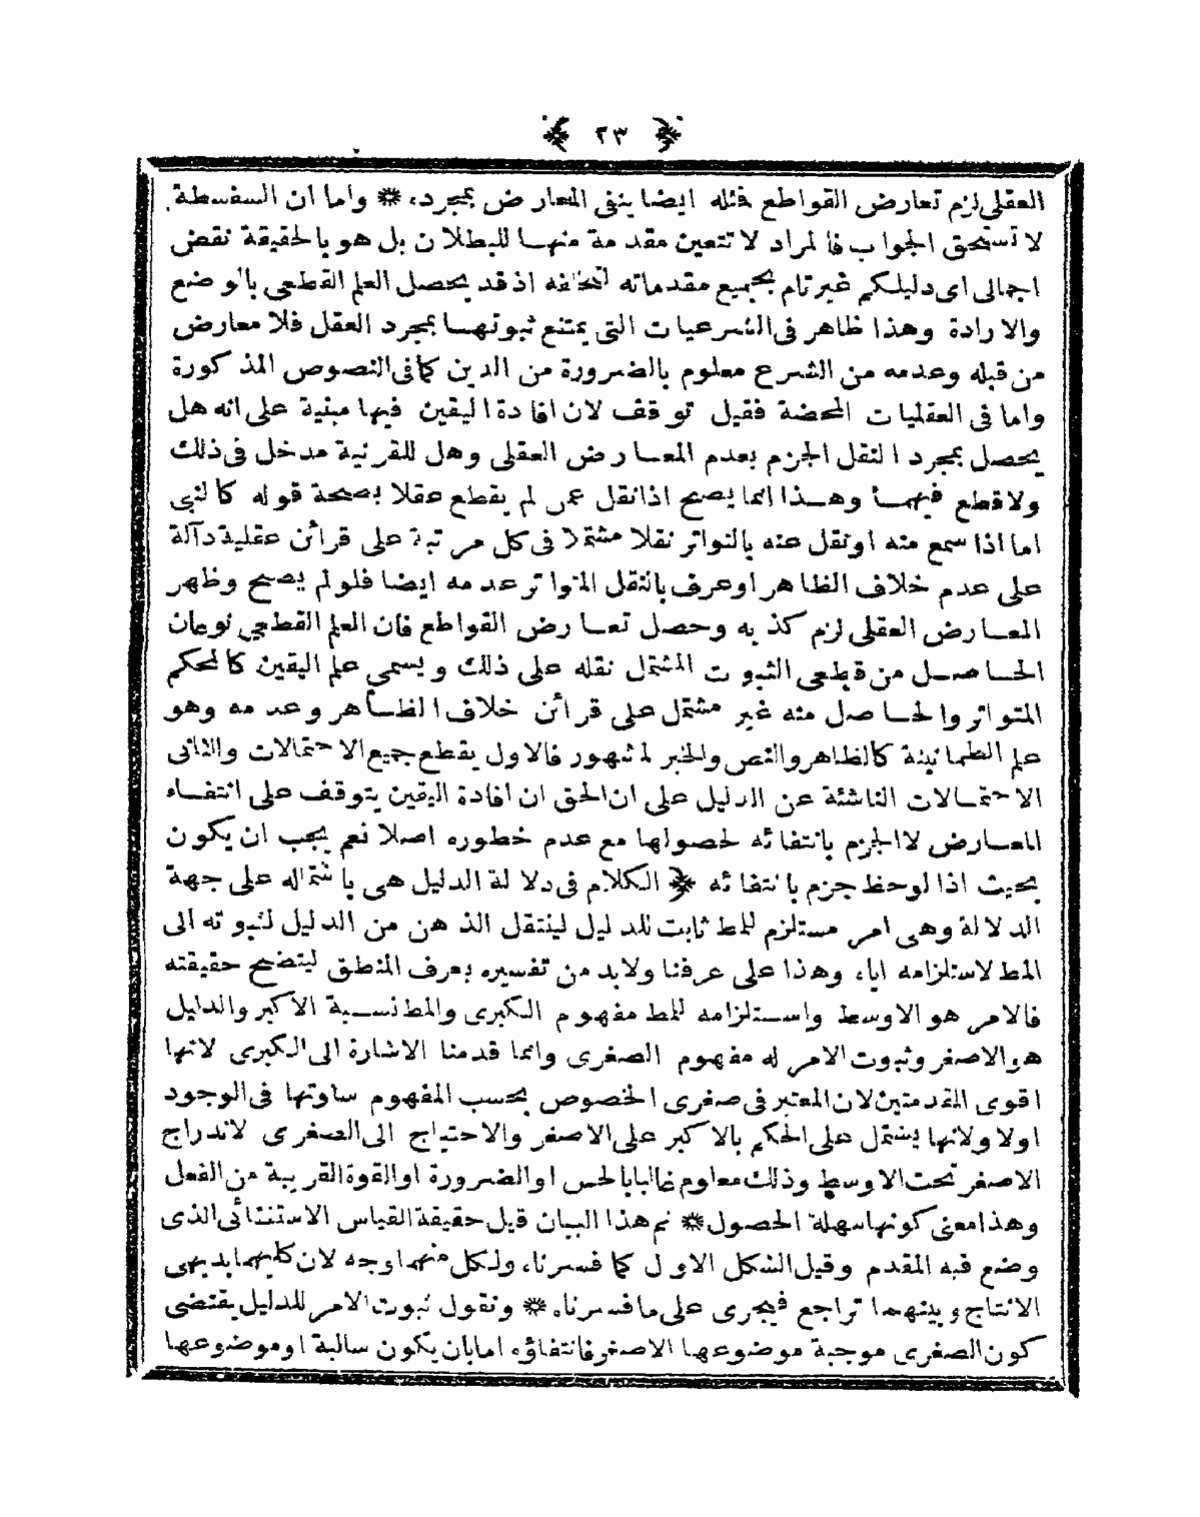 ﴿ ٢٣ ﴾
العقلى لزم تعارض القواطع فثله ايضا ينفى المعارض بمجرده * واما ان السفسطة
لا تستحق الجواب فالمراد لا تتعين مقدمة منها للبطلان بل هو بالحقيقة نقض
اجمالى اى دليلكم غير تام بجميع مقدماته لتخلفه اذ قد يحصل العلم القطعى بالوضع
والارادة وهذا ظاهر فى الشرعيات التى يمتنع ثبوتها بمجرد العقل فلا معارض
من قبله وعدمه من الشرع معلوم بالضرورة من الدين كما فى النصوص المذكورة
واما فى العقليات المحضة فقيل توقف لان افادة اليقين فيها مبنية على انه هل
يحصل بمجرد النقل الجزم بعدم المعارض العقلى وهل للقرنية مدخل فى ذلك
ولا قطع فيهما وهذا انما يصح اذا نقل عمن لم يقطع عقلا بصحة قوله كالنبى
اما اذا سمع منه او نقل عنه بالتواتر نقلا مشتملا فى كل مرتبة على قرائن عقلية دآلة
على عدم خلاف الظاهر او عرف بالنقل المتواتر عدمه ايضا فلو لم يصح وظهر
المعارض العقلى لزم كذبه وحصل تعارض القواطع فان العلم القطعى نوعان
الحاصل من قطعى الثبوت المشتمل نقله على ذلك ويسمى علم اليقين كالمحكم
المتواتر والحاصل منه غير مشتمل على قرائن خلاف الظاهر وعدمه وهو
علم الطمانينة كالظاهر والنص والخبر لمشهور فالاول يقطع جميع الاحتمالات والثانى
الاحتمالات الناشئة عن الدليل على ان الحق ان افادة اليقين يتوقف على انتفاء
المعارض لا الجزم بانتفائه لحصولها مع عدم خطوره اصلا نعم يجب ان يكون
بحيث اذا لوحظ جزم بانتفائه ﴿ الكلام فى دلالة الدليل هى باشتماله على جهة
الدلالة وهى امر مستلزم للمط ثابت للدليل لينتقل الذهن من الدليل لثبوته الى
المط لاستلزامه اياه وهذا على عرفنا ولابد من تفسيره بعرف المنطق ليتضح حقيقته
فالامر هو الاوسط واستلزامه للمط مفهوم الكبرى والمط نسبة الاكبر والدليل
هو الاصغر وثبوت الامر له مفهوم الصغرى وانما قدمنا الاشارة الى الكبرى لانها
اقوى المقدمتين لان المعتبر فى صغرى الخصوص بحسب المفهوم ساوتها فى الوجود
اولا ولانها يشتمل على الحكم بالاكبر على الاصغر والاحتياج الى الصغرى لاندراج
الاصغر تحت الاوسط وذلك معلوم غالبا بالحس او الضرورة او القوة القريبة من الفعل
وهذا معنى كونها سهلة الحصول * ثم هذا البيان قيل حقيقة القياس الاستثنائى الذى
وضع فيه المقدم وقيل الشكل الاول كما فسرناه ولكل منهما وجه لان كليهما بديهى
الانتاج وبينهما تراجع فيجرى على ما فسرناه * ونقول ثبوت الامر للدليل يقتضى
كون الصغرى موجبة موضوعها الاصغر فانتفاؤه اما بان يكون سالبة او موضوعها